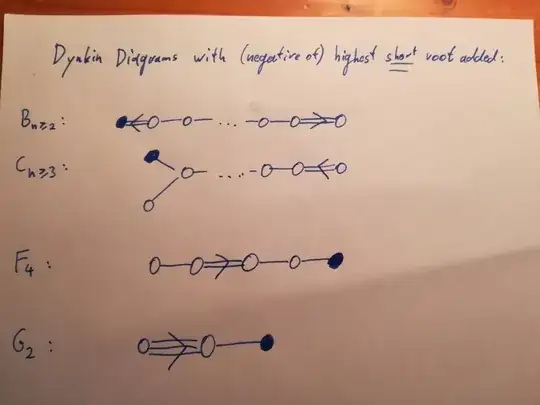 Dynkin Diagrams with (negative of) highest short root added:
B_{n≥2}:
...
C_{n≥3}:
....
F_4:
G_2: